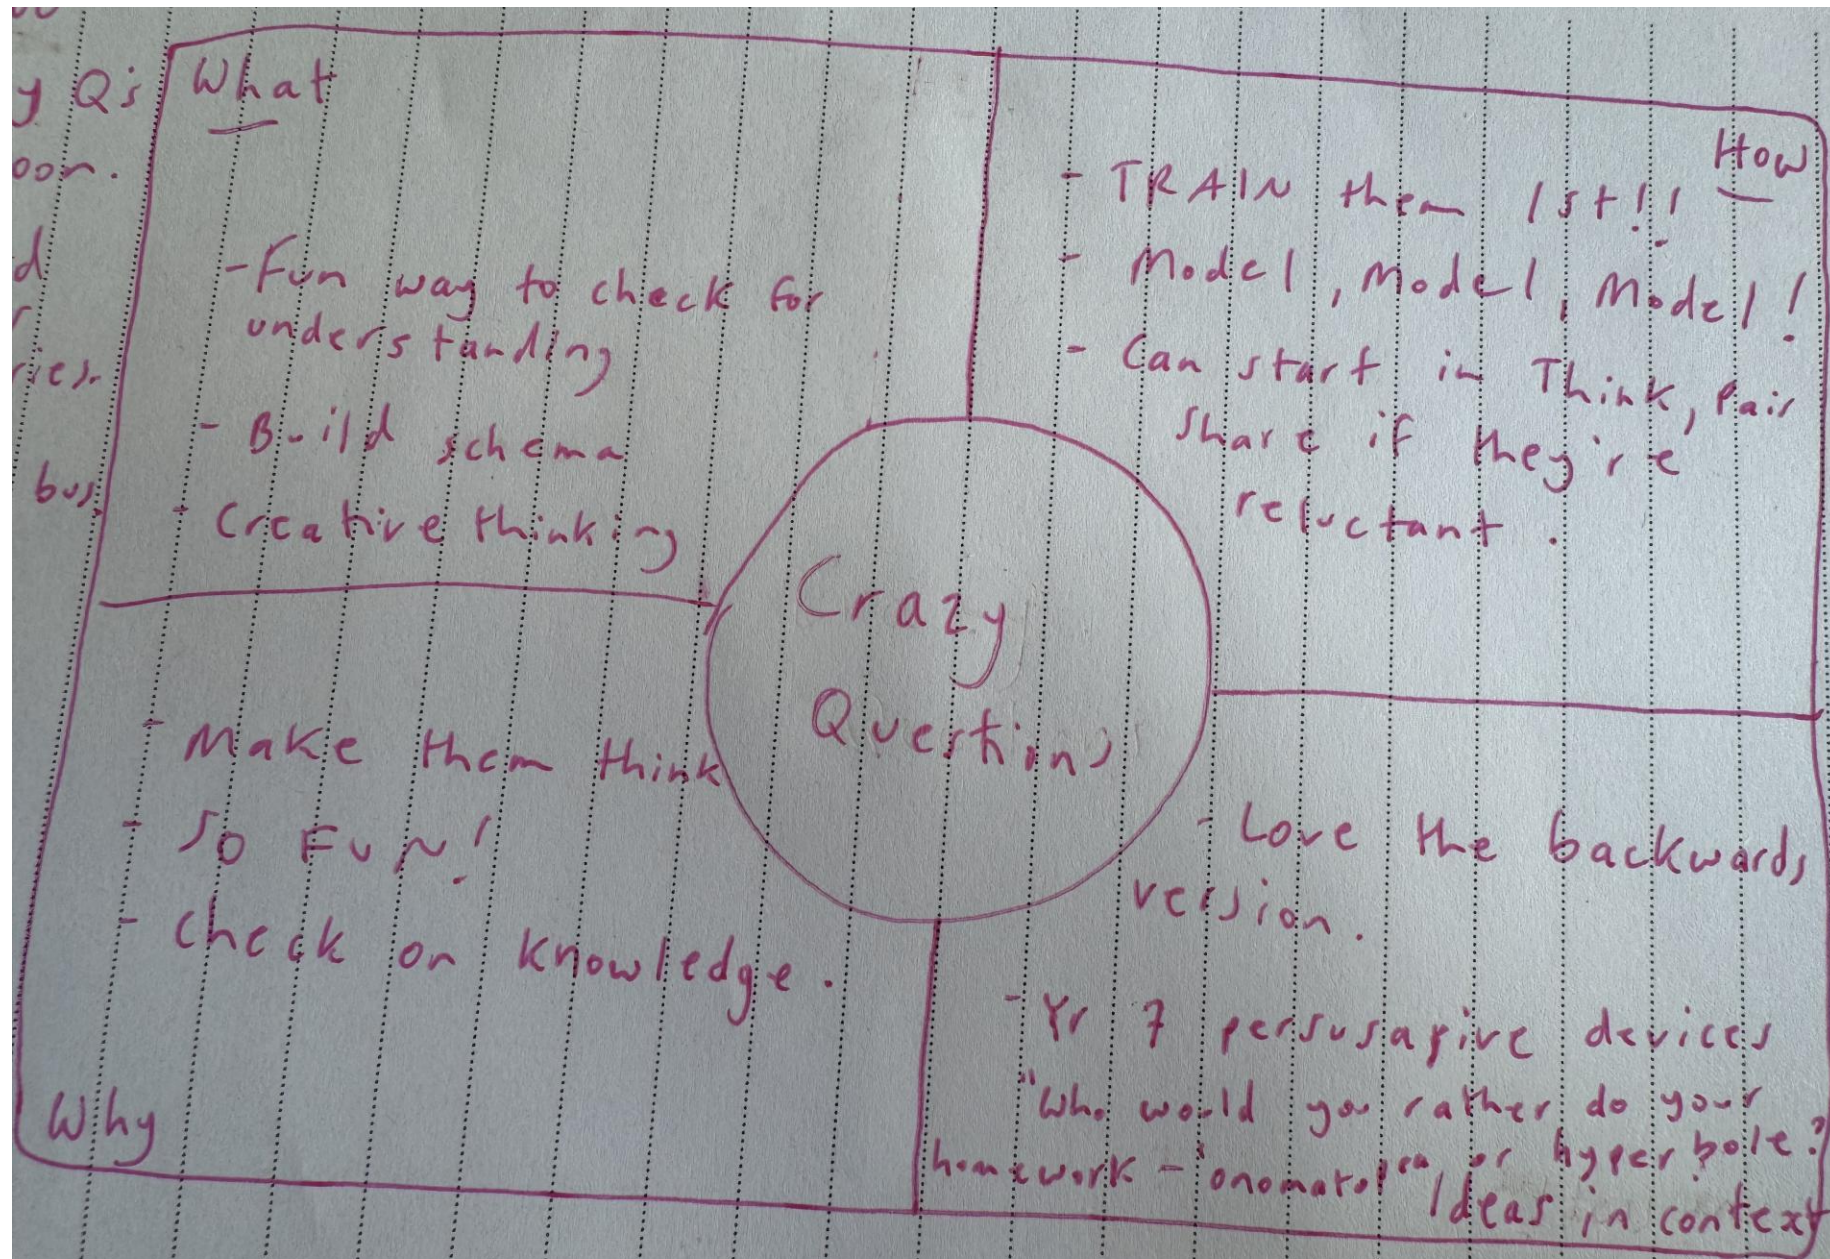 y Q's
oon.
d
ries.
bus
What
- Fun way to check for
understanding
- Build schema
- Creative thinking
How
- TRAIN them 1st!!
- Model, Model, Model!
- Can start in Think, Pair
share if they're
reluctant.
Crazy
Questions
- Make them think
- SO FUN!
- Check on knowledge.
Why
- Love the backwards
version.
- Yr 7 persusasive devices
"Who would you rather do your
homework - onomatopoea, or hyperbole?
Ideas in context